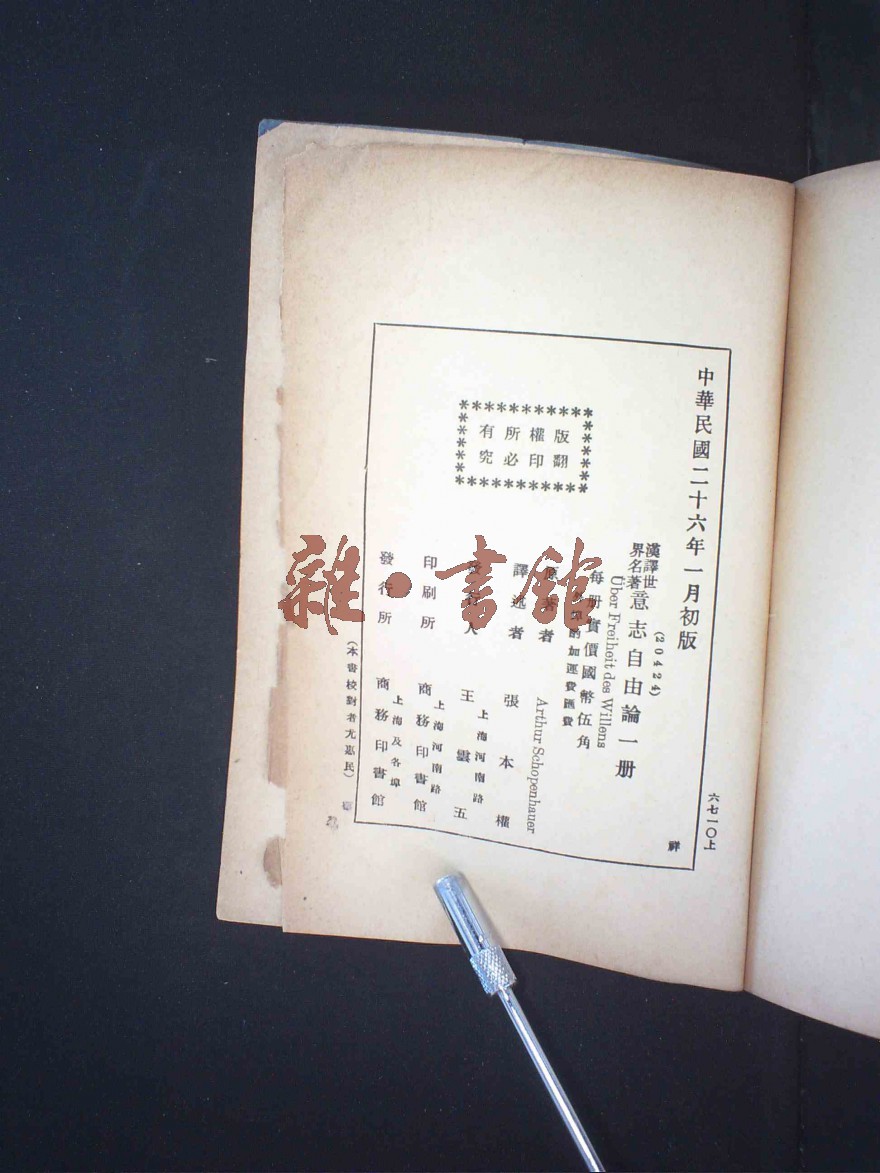 中華民國二十六年一月初版
六七一〇上
祥
(20424)
漢譯世界名著 意志自由論一册
Über Freiheit des Willens
每册實價國幣伍角
加運費匯費
版權所有
翻印必究
原著者 Arthur Schopenhauer
譯述者 張本權
發行人 王雲五
上海河南路
印刷所 商務印書館
上海河南路
發行所 商務印書館
上海及各埠
(本書校對者尤惠民)
雜·書館